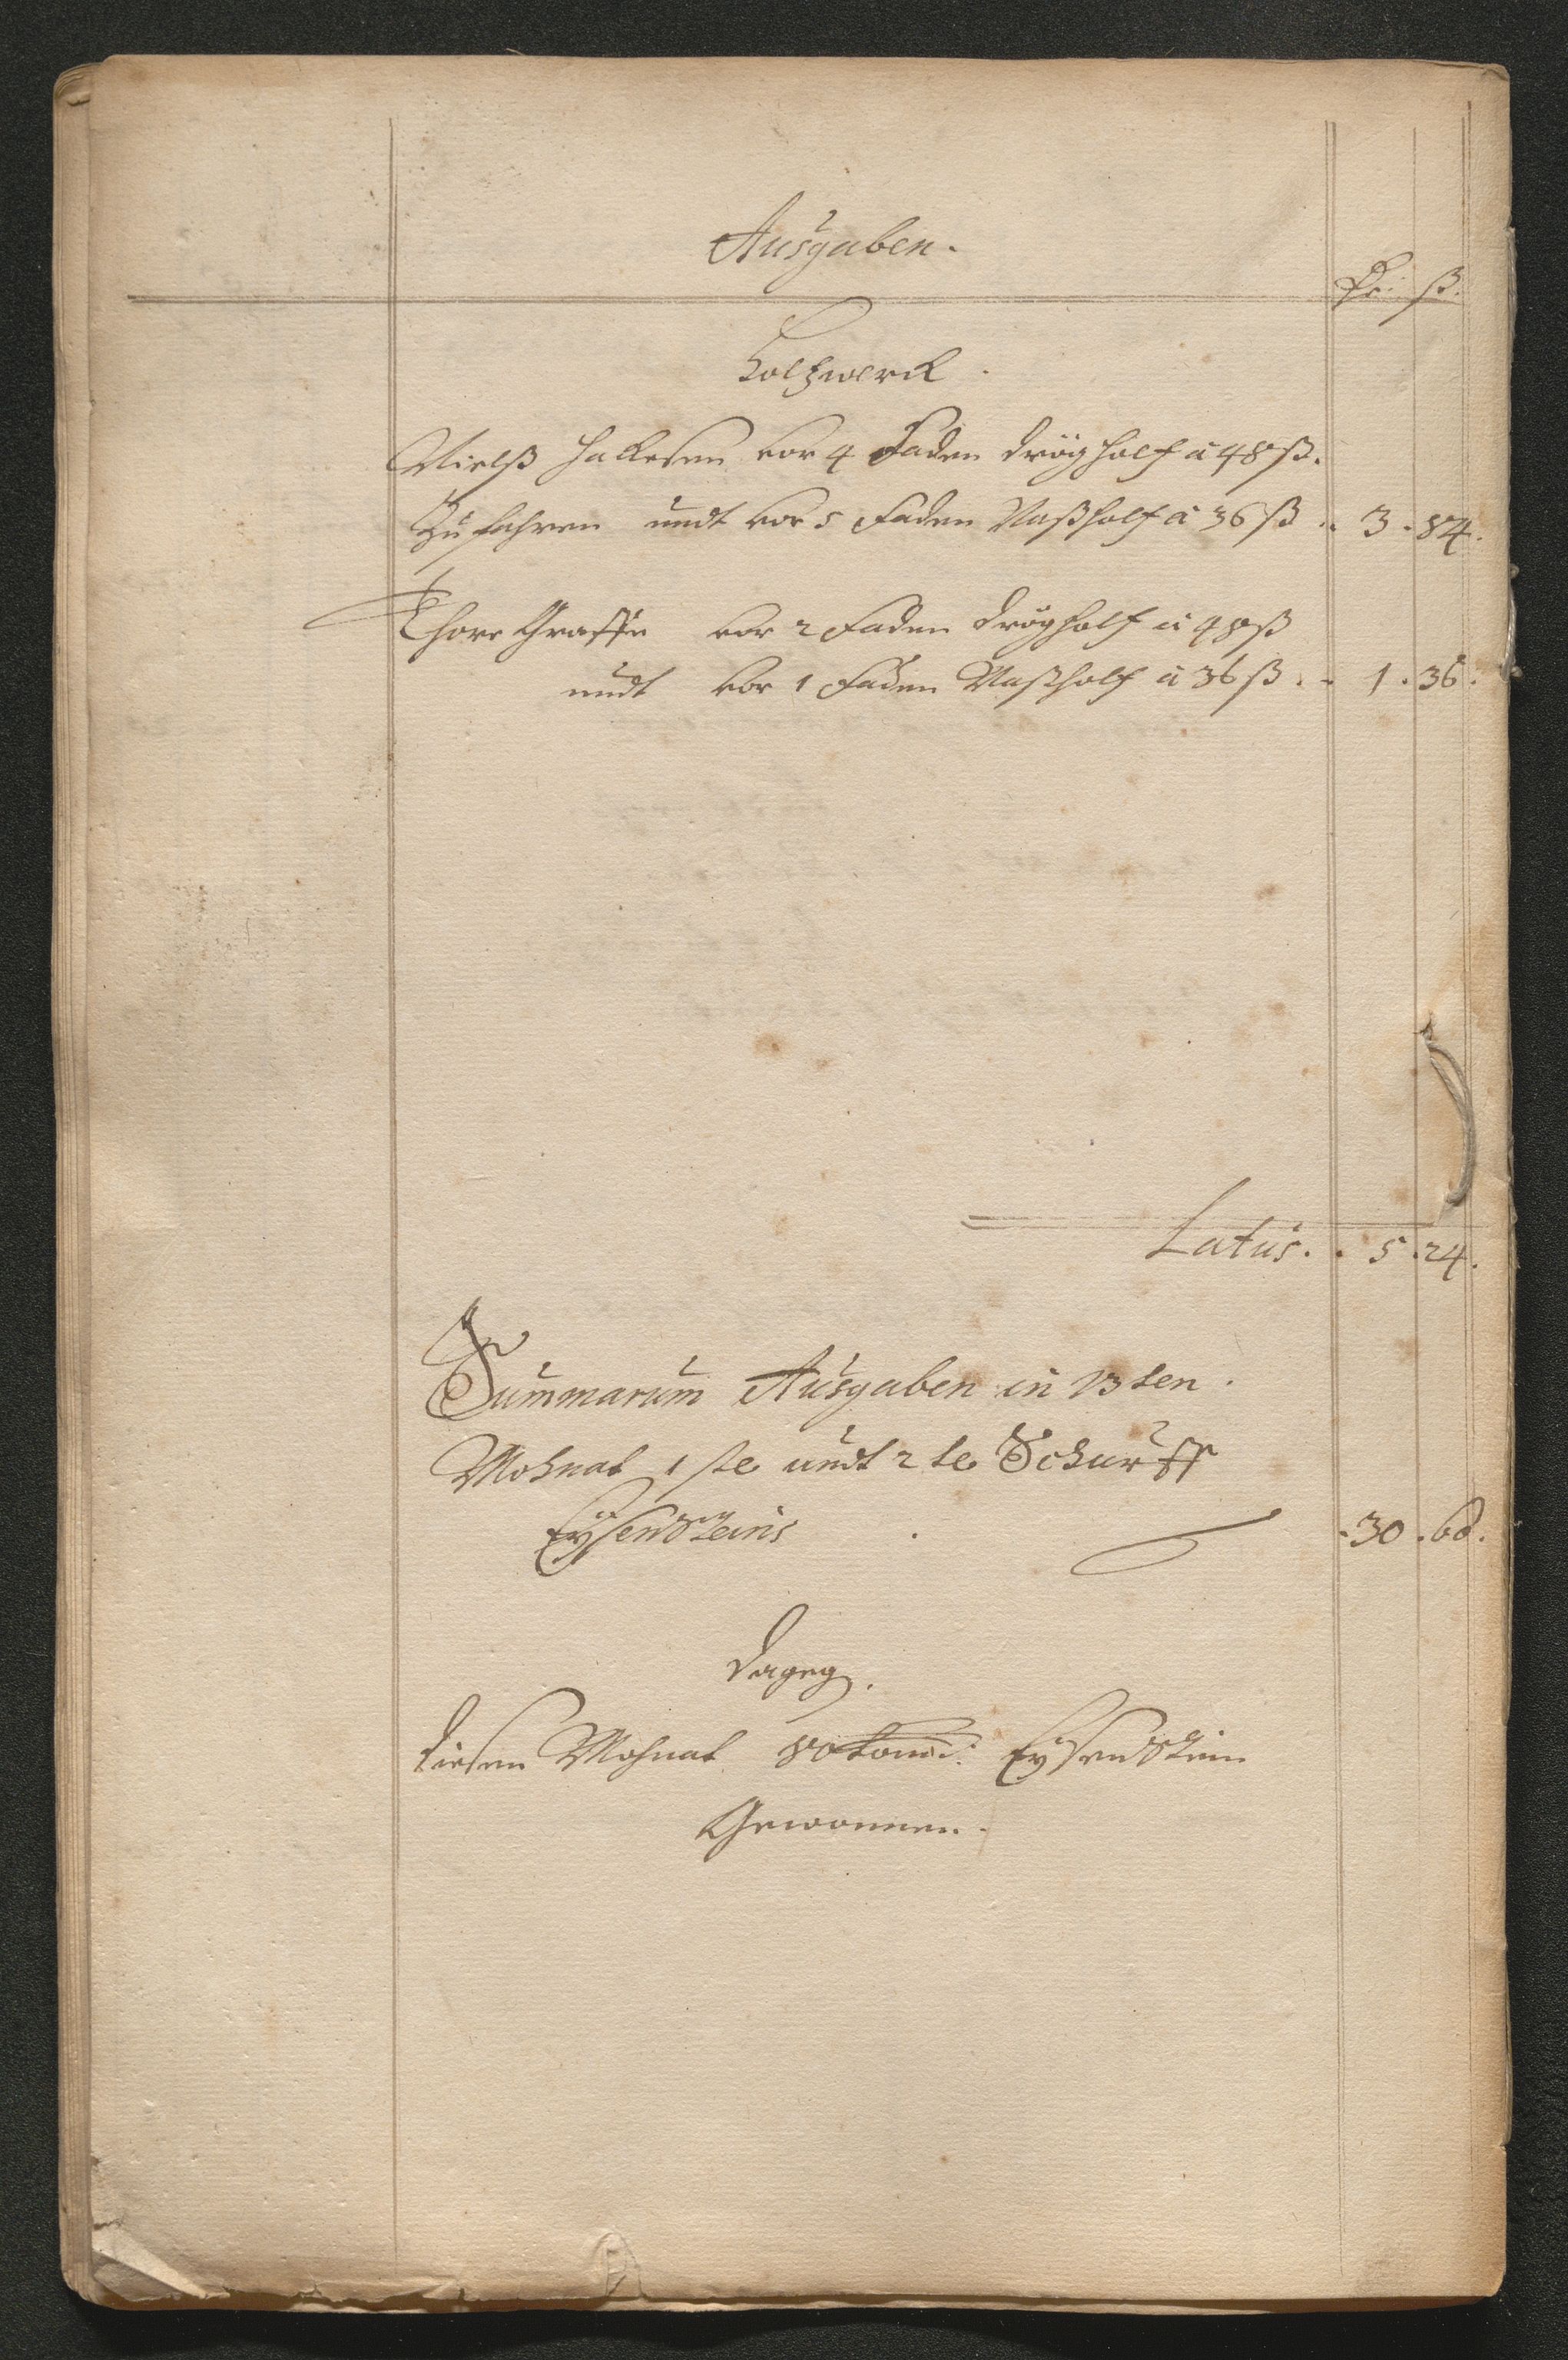 Ausgaben.
ß.
Holtzwerck.
Nielß Hallesen vor 4 Faden drög holtz a 48 ß.
Zu fahren undt vor 5 Faden Naßholtz a 36 ß .. 3. 84.
Thore Graffe vor 2 Faden drögholtz a 48 ß
undt vor 1 Faden Naßholtz a 36 ß .. 1. 36.
Latus. . 5. 24.
Summarum Ausgaben in 13 ten.
Mohnat 1 ste undt 2 te Schurff
Eysensteins . 30. 68.
Dageg.
diesen Mohnat 80 tonn: Eysenstein
Gewonnen.